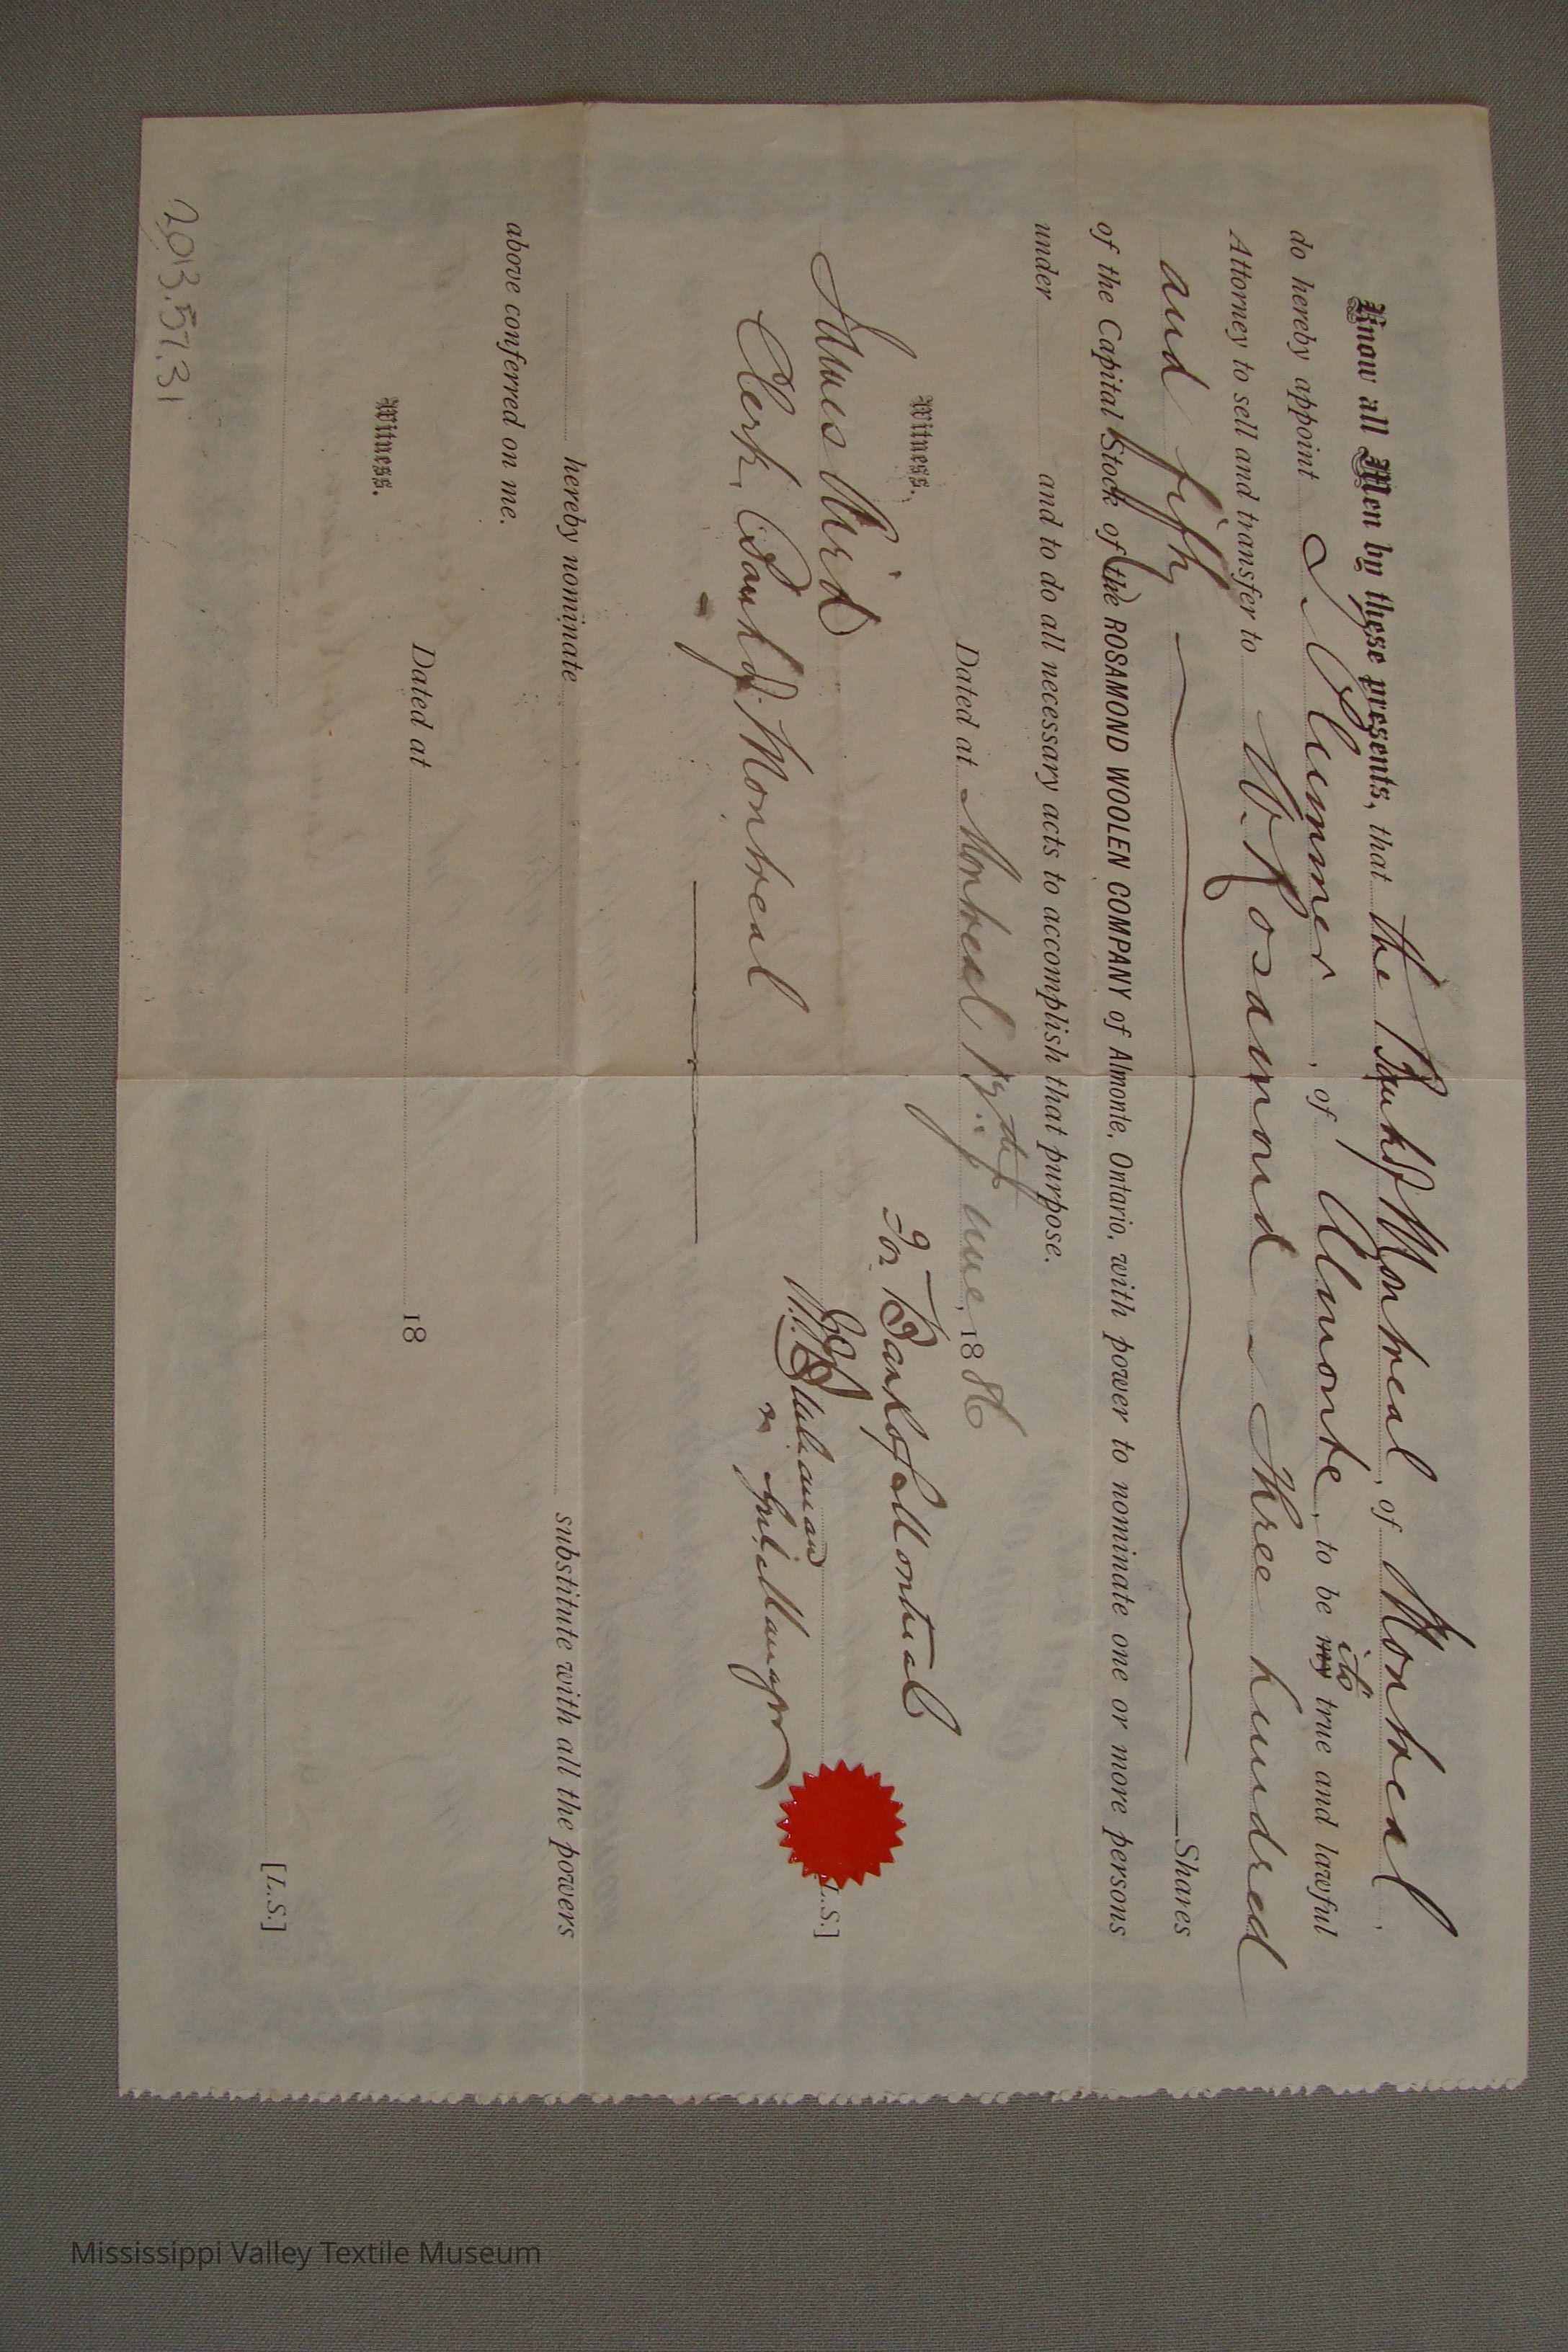 Know all Men by these presents, that the Bank of Montreal, of Montreal,
do hereby appoint J Plummer, of Almonte, to be my its true and lawful
Attorney to sell and transfer to B. Rosamond Three hundred
and fifty Shares
of the Capital Stock of the ROSAMOND WOOLEN COMPANY of Almonte, Ontario, with power to nominate one or more persons
under and to do all necessary acts to accomplish that purpose.
Dated at Montreal June, 1886
Witness.
For Bank of Montreal
James
W. J. Buchanan L.S.]
Clerk, Bank of Montreal
Genl Manager
hereby nominate substitute with all the powers
above conferred on me.
Dated at 18
Witness.
[L.S.]
2013.57.31
Mississippi Valley Textile Museum